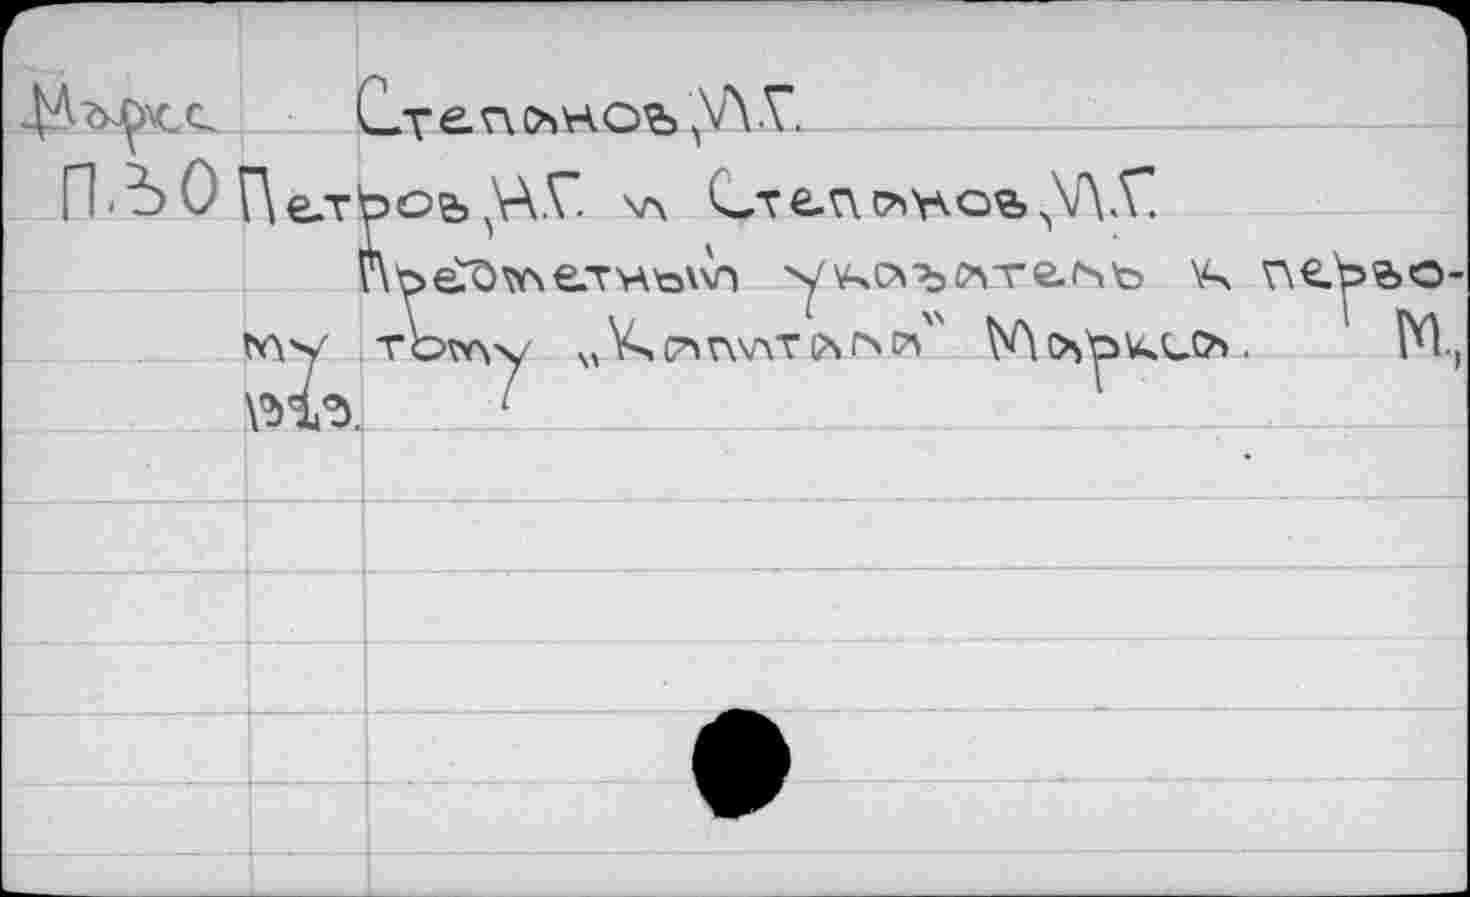 Маркс Степанов, И.Г.
Петров, И.Г. и Степанов, И.Г.
Предметный указатель к перво-
му тому „Капитала" Маркса. М.,